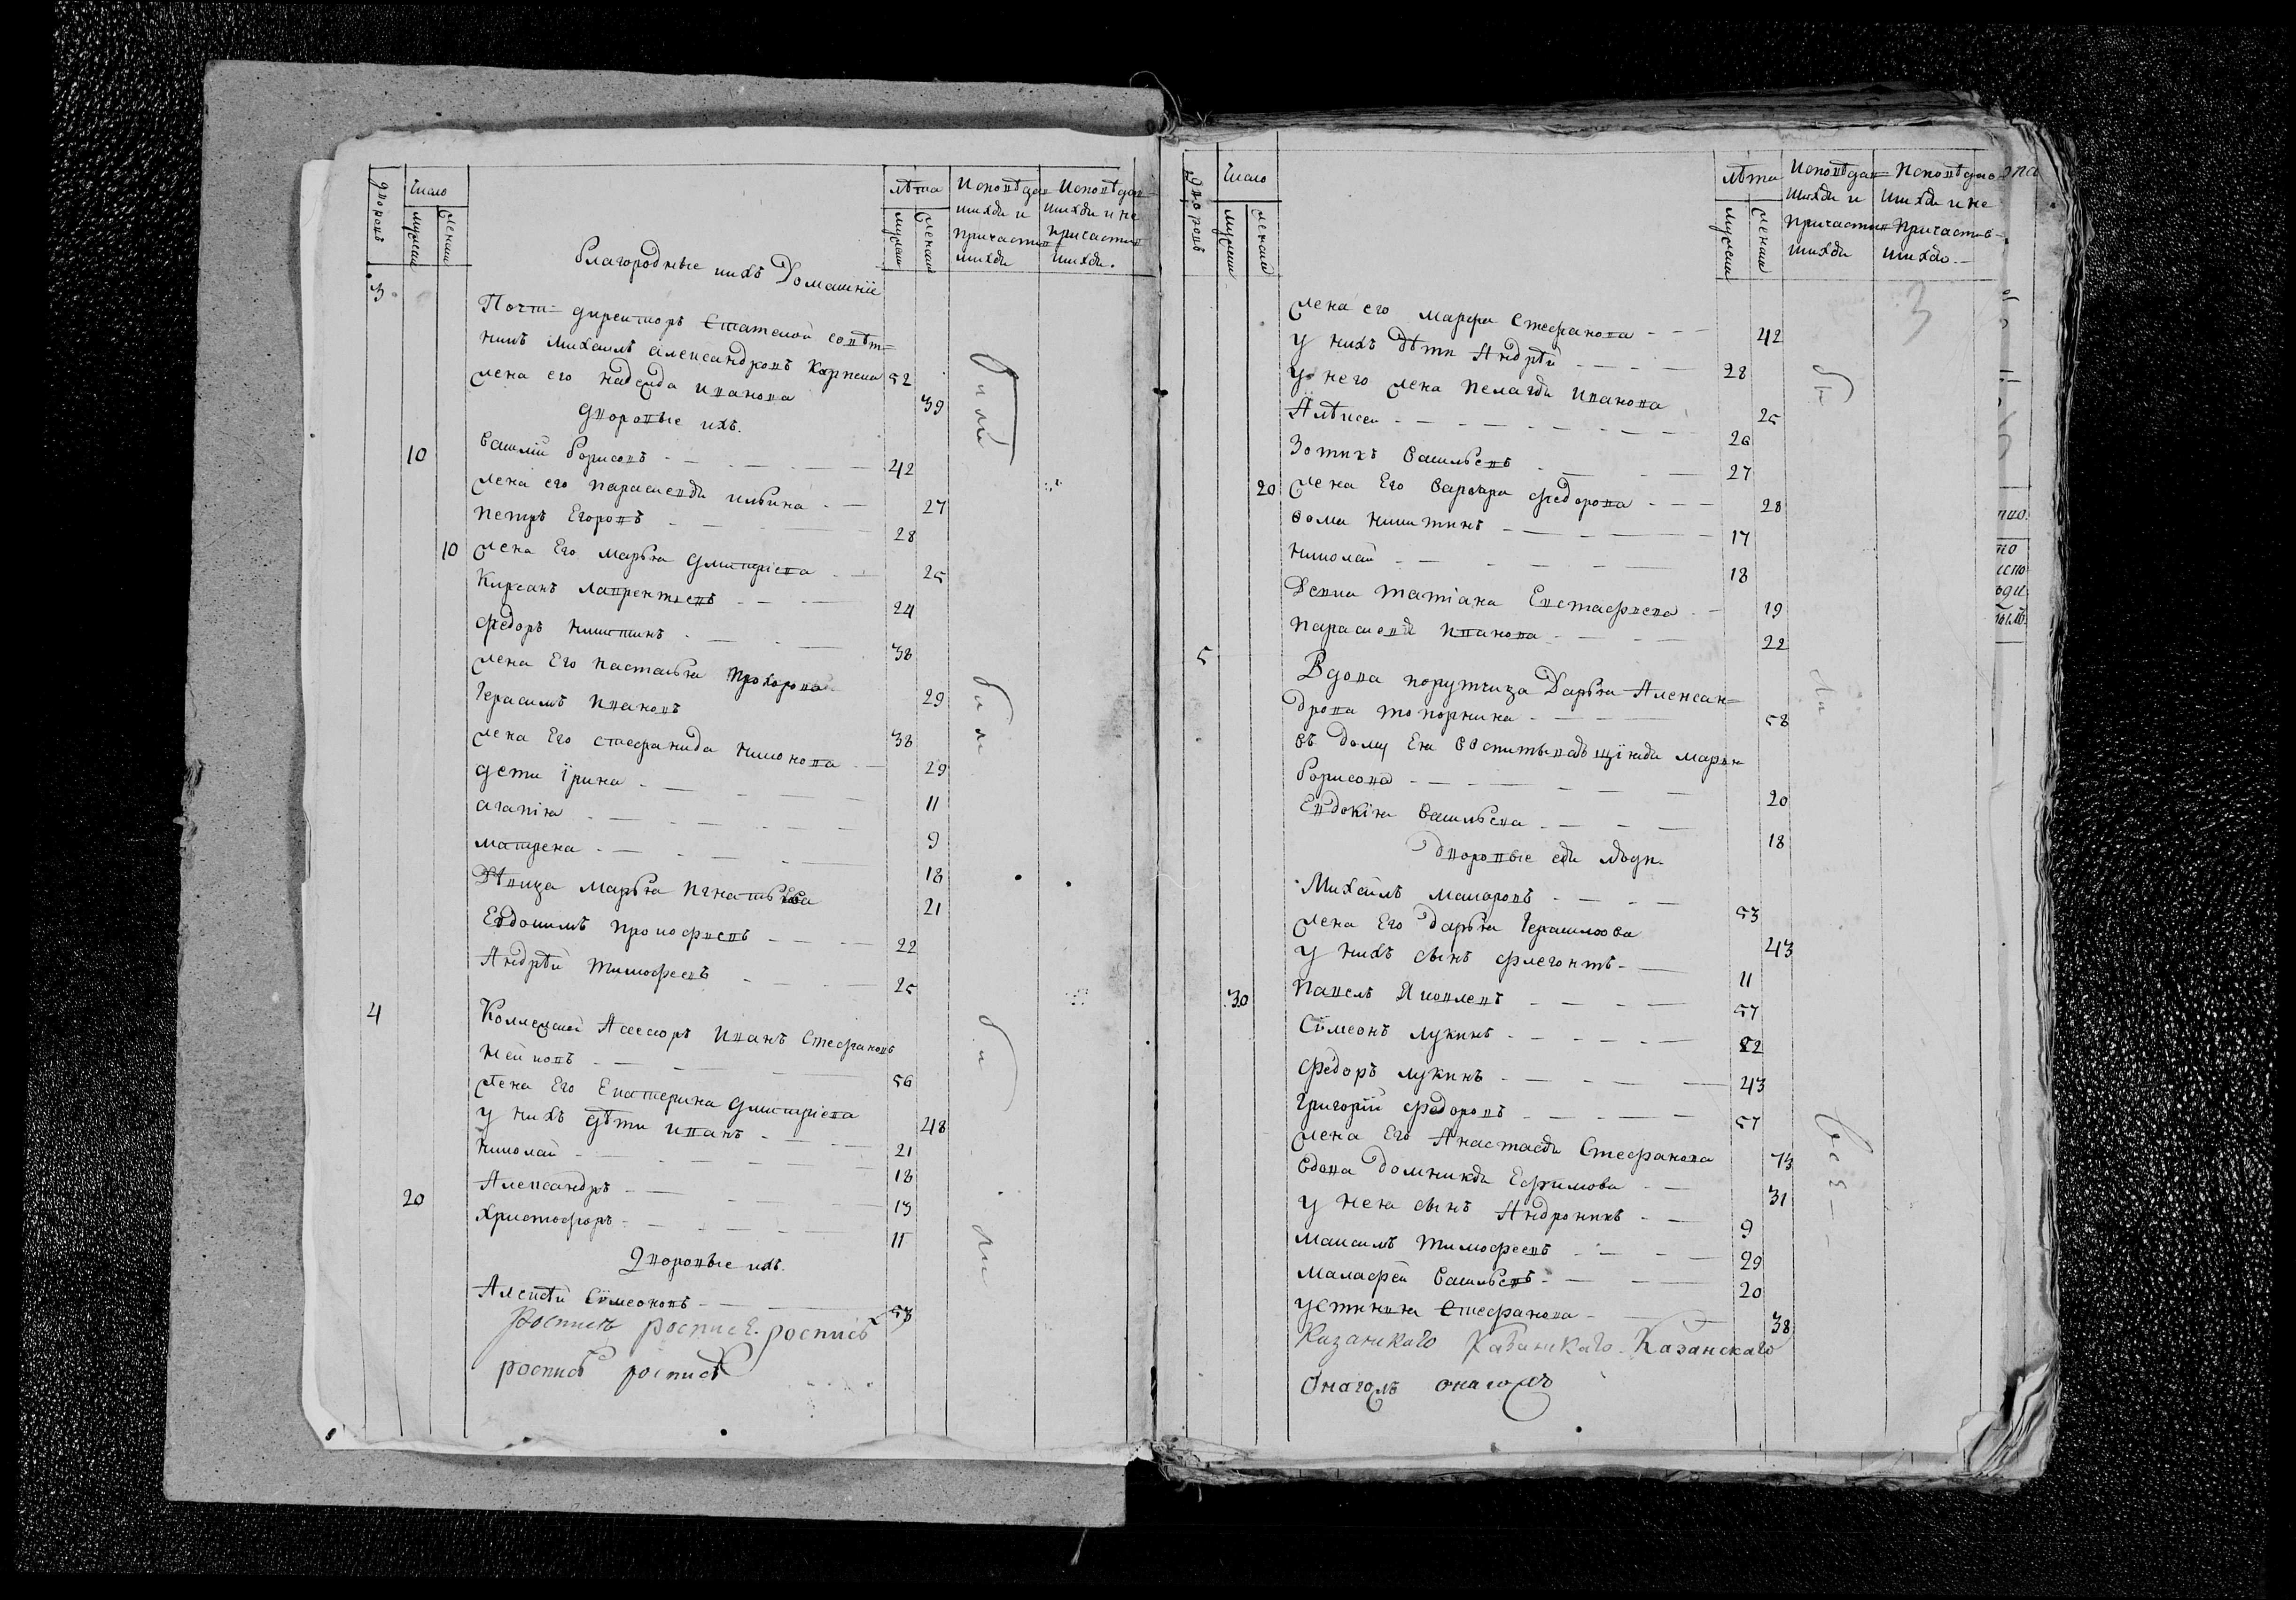 дворовъ
Число
мужеска
женска
лѣта
мужеска
женска
Исповѣдав=
шихся и
причастив
шихся
Исповѣдав=
шихся и не
причастив
шихся.
Благородные ихъ Домашніе
3
Почт= директоръ Статской совѣт=
никъ Михаилъ Александровъ 52
жена его Надежда Иванова 39
Дворовые ихъ.
10 Василій Борисовъ 42
жена его Парасковья Ильина 27
Петръ Егоровъ 28
10 жена Его Марья Дмитріева 25
Кирсанъ Лаврентьевъ 24
Федоръ Никитинъ 38
жена Его Настасья Прохорова 29
Герасимъ Ивановъ 38
жена Его Стефанида Никонова 29
дети Їрина 11
Агапія 9
Матрена 18
Дѣвица Марья Игнатьева 21
Евдокимъ Прокофьевъ 22
Андрѣй Тимофеевъ 25
4 Коллежской Асессоръ Иванъ Стефановъ
56
жена Его Екатерина Дмитріева 48
у нихъ дѣти Иванъ 21
Николай 18
20 Александръ 13
Христофоръ 11
Дворовые ихъ.
Алексѣй Сімеоновъ 53
роспись роспись роспись
роспись роспись
были
были
были
дворовъ
Число
мужеска
женска
лѣта
мужеска
женска
Исповѣдав=
шихся и
причастив=
шихся
Исповѣдав
шихся и не
причастив=
шихся.
3
жена его Марфа Стефанова 42
у нихъ дѣти Андрѣй 28
у него жена Пелагея Иванова 25
Алѣксеи 26
Зотикъ Васильевъ 27
20 жена Его Варвара Федорова 28
Фома Никитинъ 17
Николай 18
Девка Татіана Евстафиева 19
Парасковья Иванова 22
5 Вдова порутчица Дарья Алексан=
дрова Топорнина 58
Въ дому Ея Воспитывающіяся Марья
Борисова 20
Евдокія Васильева 18
Дворовые ея люди.
Михаилъ Макаровъ 53
жена Его Дарья Герасимова 43
у нихъ сынъ Флегонтъ 11
30 Павелъ Яковлевъ 57
Сімеонъ Лукинъ 22
Федоръ Лукинъ 43
Григорій Федоровъ 57
жена Его Анастасья Стефанова 43
вдова Домникия Ефимова 31
у нея сынъ Андроникъ 9
Максимъ Тимофеевъ 29
Малафей Васильевъ 20
Устинья Стефанова 38
Казанскаго Казанскаго Казанскаго
Онаголъ онаголъ